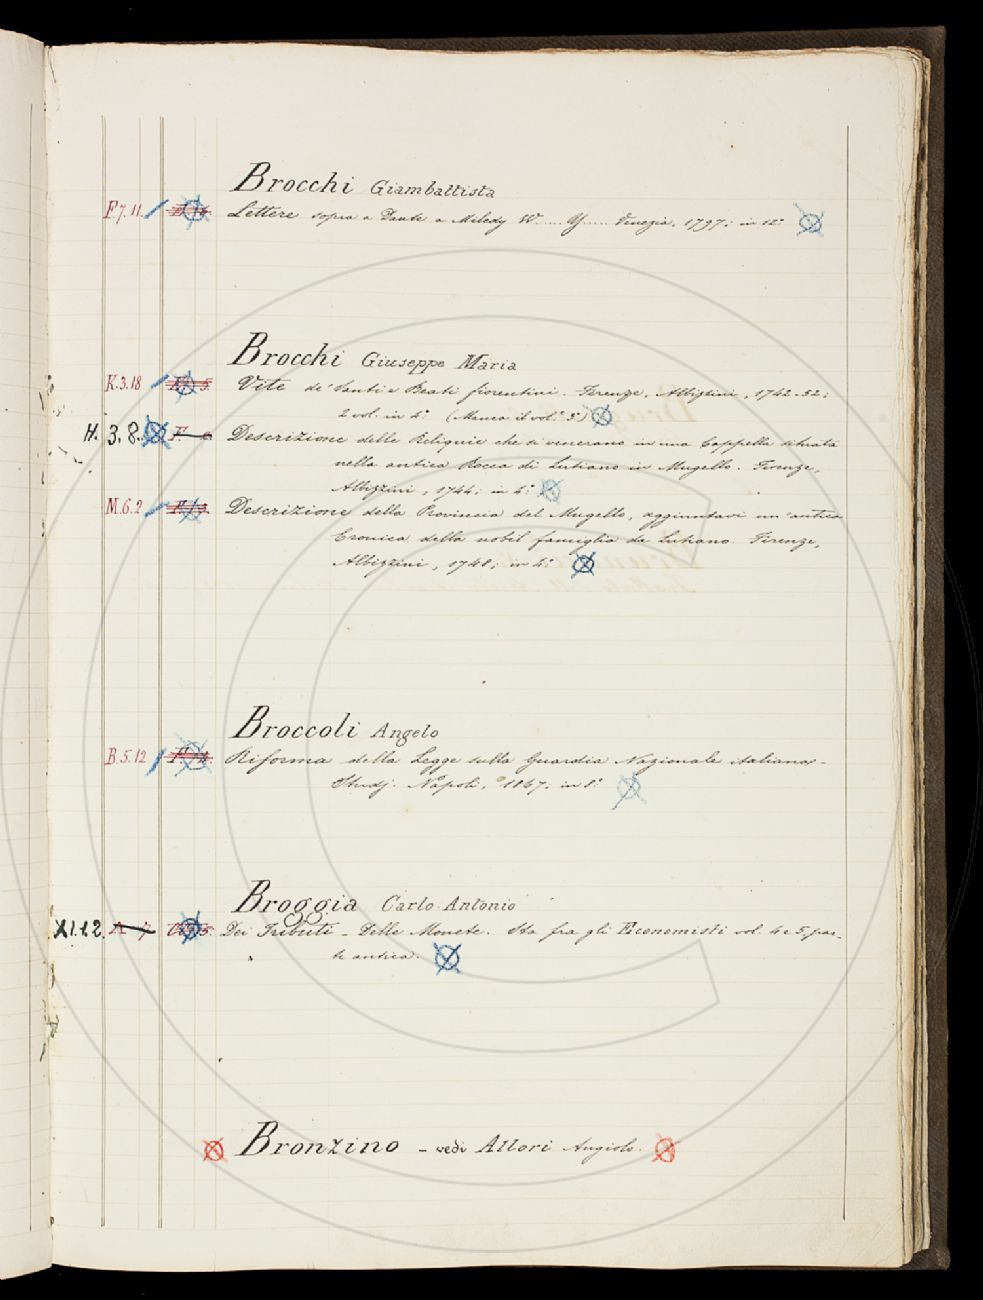 Brocchi Giambattista
F.7.11. Lettere sopra a Dante a Miledy W..... Y..... Venezia, 1797; in 12.°
Brocchi Giuseppe Maria
K.3.18 Vite de' Santi e Beati fiorentini. Firenze, Albizzini, 1742-52;
2 vol. in 4.° (Manca il vol.° 3°)
H. 3.8. Descrizione delle Reliquie che si venerano in una Cappella situata
nella antica Rocca di Lutiano in Mugello. Firenze,
Albizzini, 1744; in 4.°
M.6.2 Descrizione della Provincia del Mugello, aggiuntavi un'antica
Cronica della nobil famiglia da Lutiano. Firenze,
Albizzini, 1748; in 4.°
Broccoli Angelo
B.5.12 Riforma della Legge sulla Guardia Nazionale italiana -
Studj. Napoli, 1867; in 8.°
Broggia Carlo Antonio
XI.1.2. Dei Tributi - Delle Monete. Sta fra gli Economisti vol. 4 e 5 par-
te antica.
Bronzino - vedi Allori Angiolo.